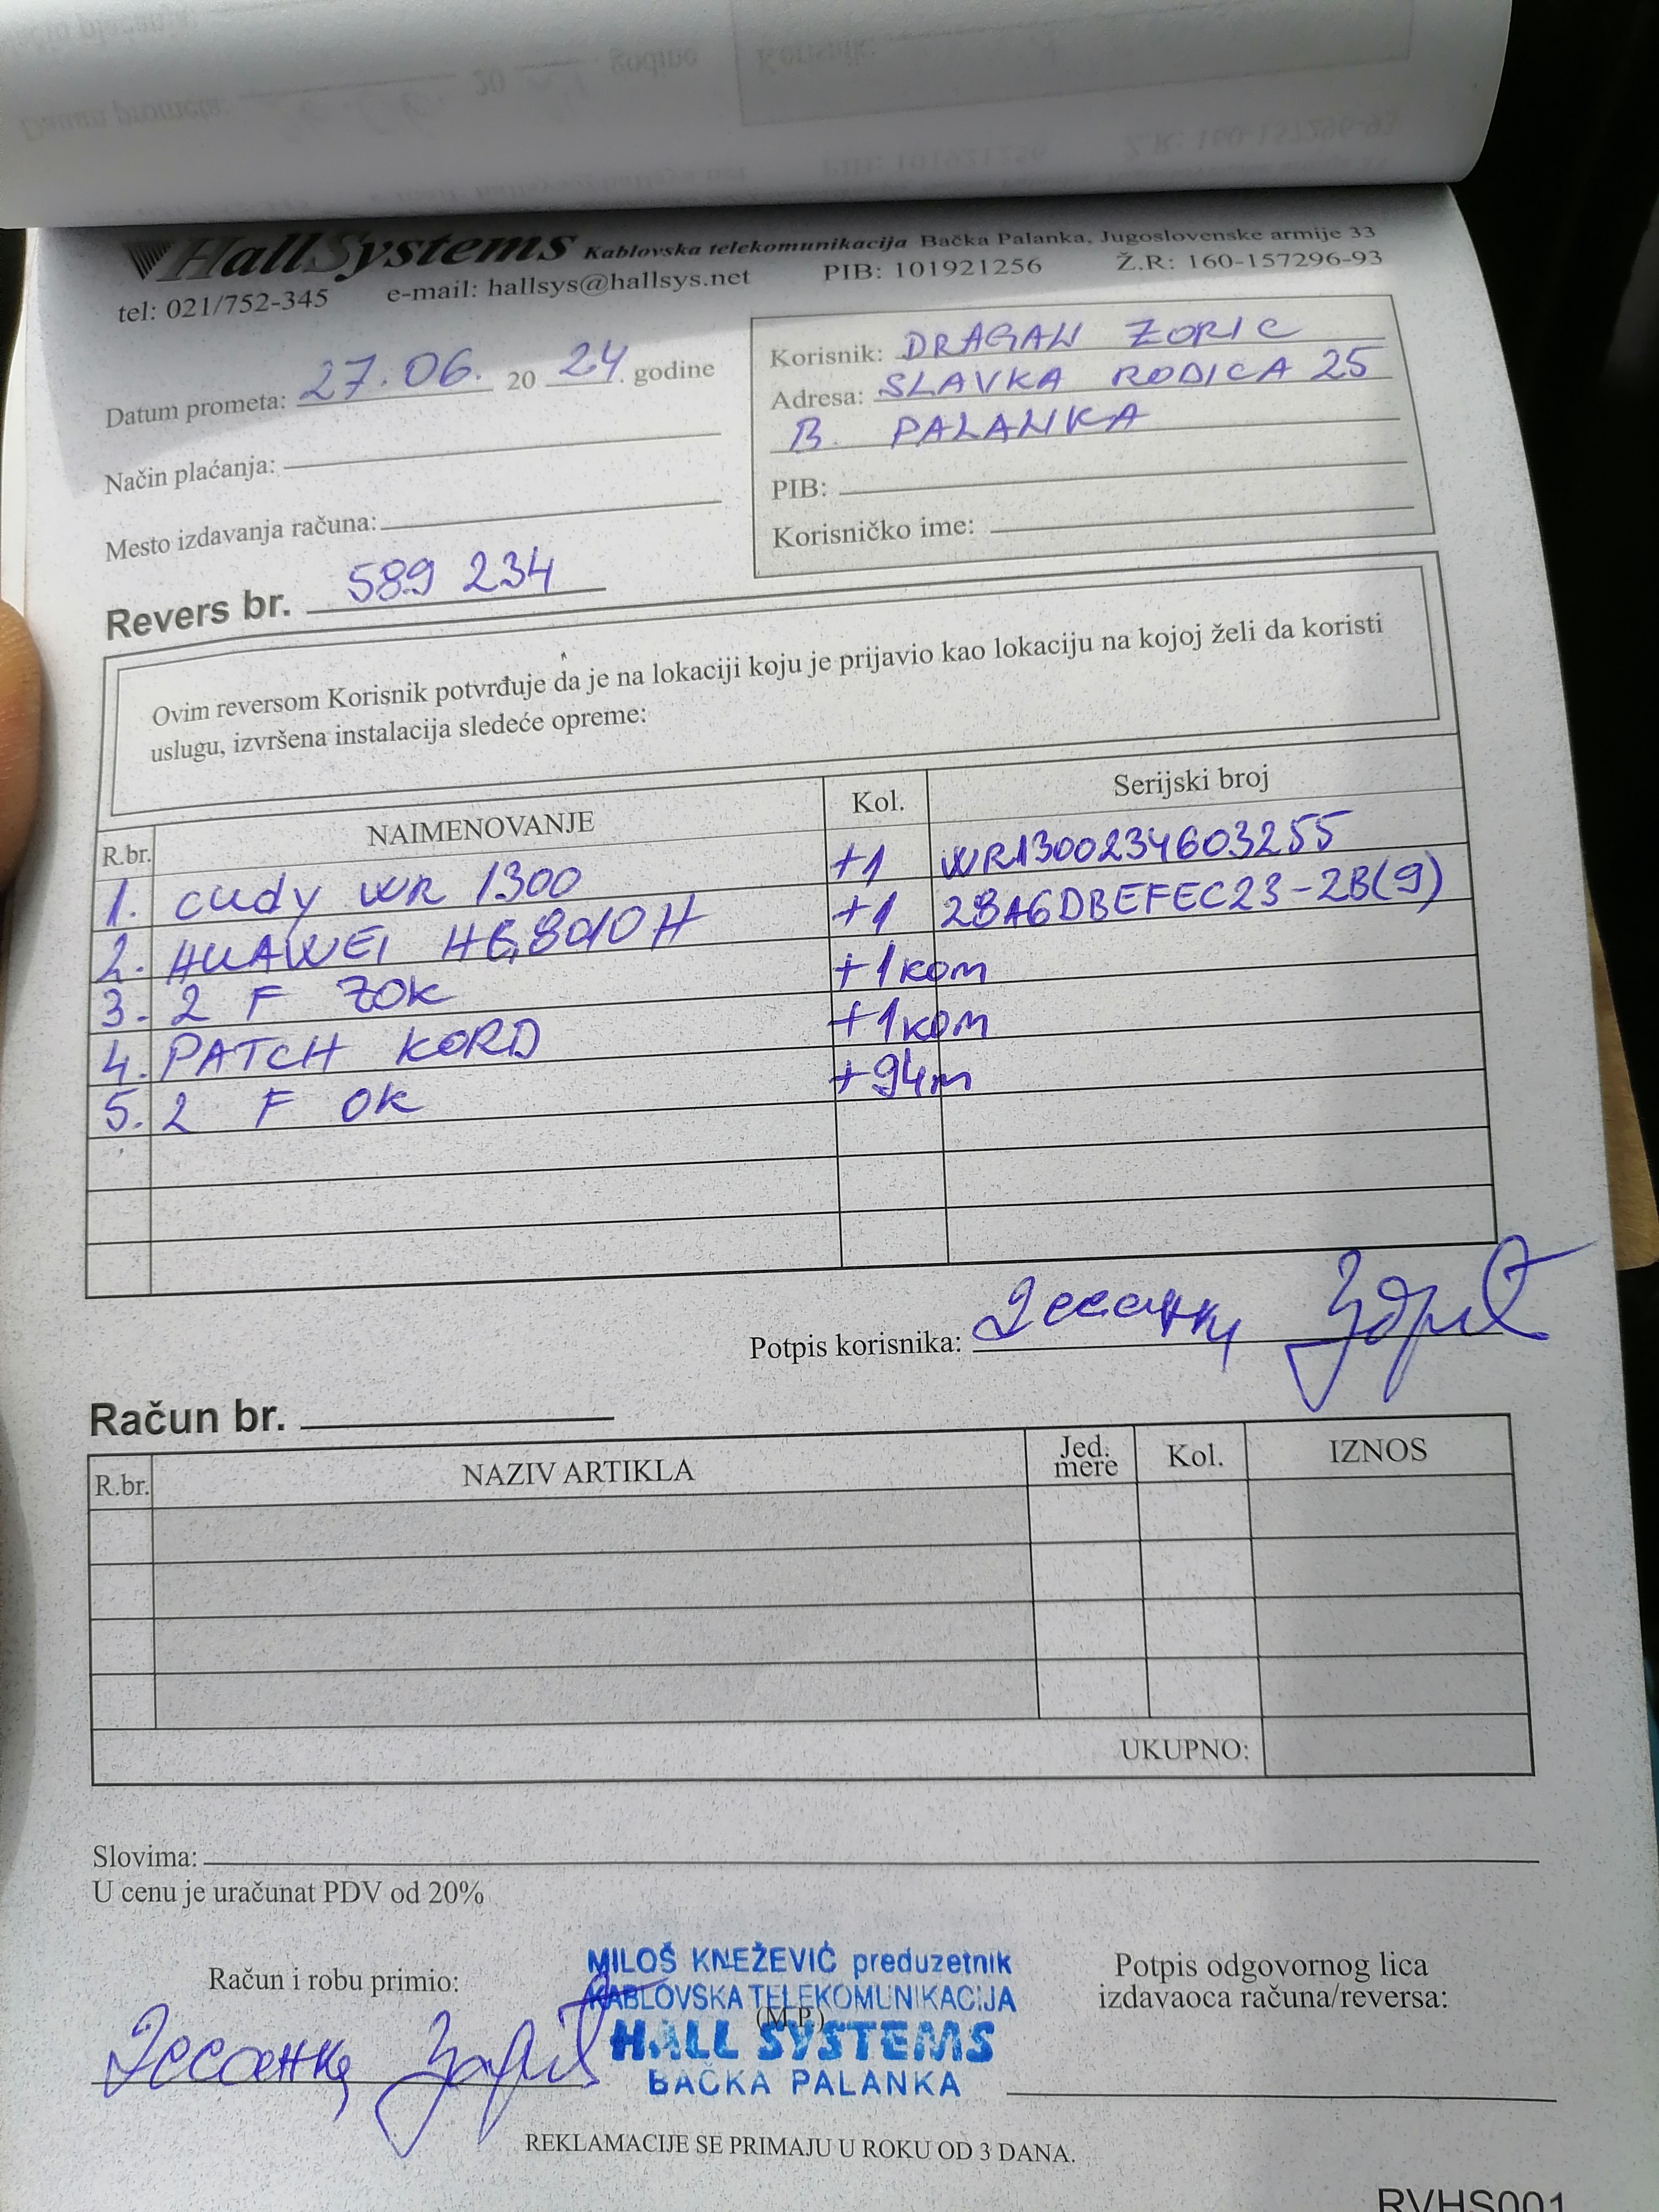 HallSystems Kablovska telekomunikacija Bačka Palanka, Jugoslovenske armije 33
tel: 021/752-345 e-mail: hallsys@hallsys.net PIB: 101921256 Ž.R: 160-157296-93
Datum prometa: 27.06. 20 24. godine
Način plaćanja:
Mesto izdavanja računa:
Korisnik: DRAGAN ZORIC
Adresa: SLAVKA RODICA 25
B. PALANKA
PIB:
Korisničko ime:
Revers br. 589 234
Ovim reversom Korisnik potvrđuje da je na lokaciji koju je prijavio kao lokaciju na kojoj želi da koristi
uslugu, izvršena instalacija sledeće opreme:
R.br. NAIMENOVANJE Kol. Serijski broj
1. cudy WR 1300 +1 WR1300234603255
2. HUAWEI HG8010H +1 28A6DBEFEC23-2B(9)
3. 2 F ZOK +1kom
4. PATCH KORD +1kom
5. 2 F OK +94m
Potpis korisnika:
Račun br.
R.br. NAZIV ARTIKLA Jed. mere Kol. IZNOS
UKUPNO:
Slovima:
U cenu je uračunat PDV od 20%
Račun i robu primio:
MILOŠ KNEŽEVIĆ preduzetnik
KABLOVSKA TELEKOMUNIKACIJA
(M.P.)
HALL SYSTEMS
BAČKA PALANKA
Potpis odgovornog lica
izdavaoca računa/reversa:
REKLAMACIJE SE PRIMAJU U ROKU OD 3 DANA.
RVHS001